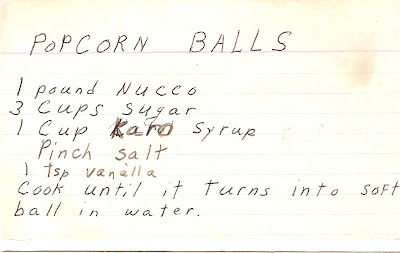 POPCORN BALLS
1 pound Nucco
3 Cups Sugar
1 Cup Karo Syrup
Pinch salt
1 tsp vanella
Cook until it turns into soft
ball in water.